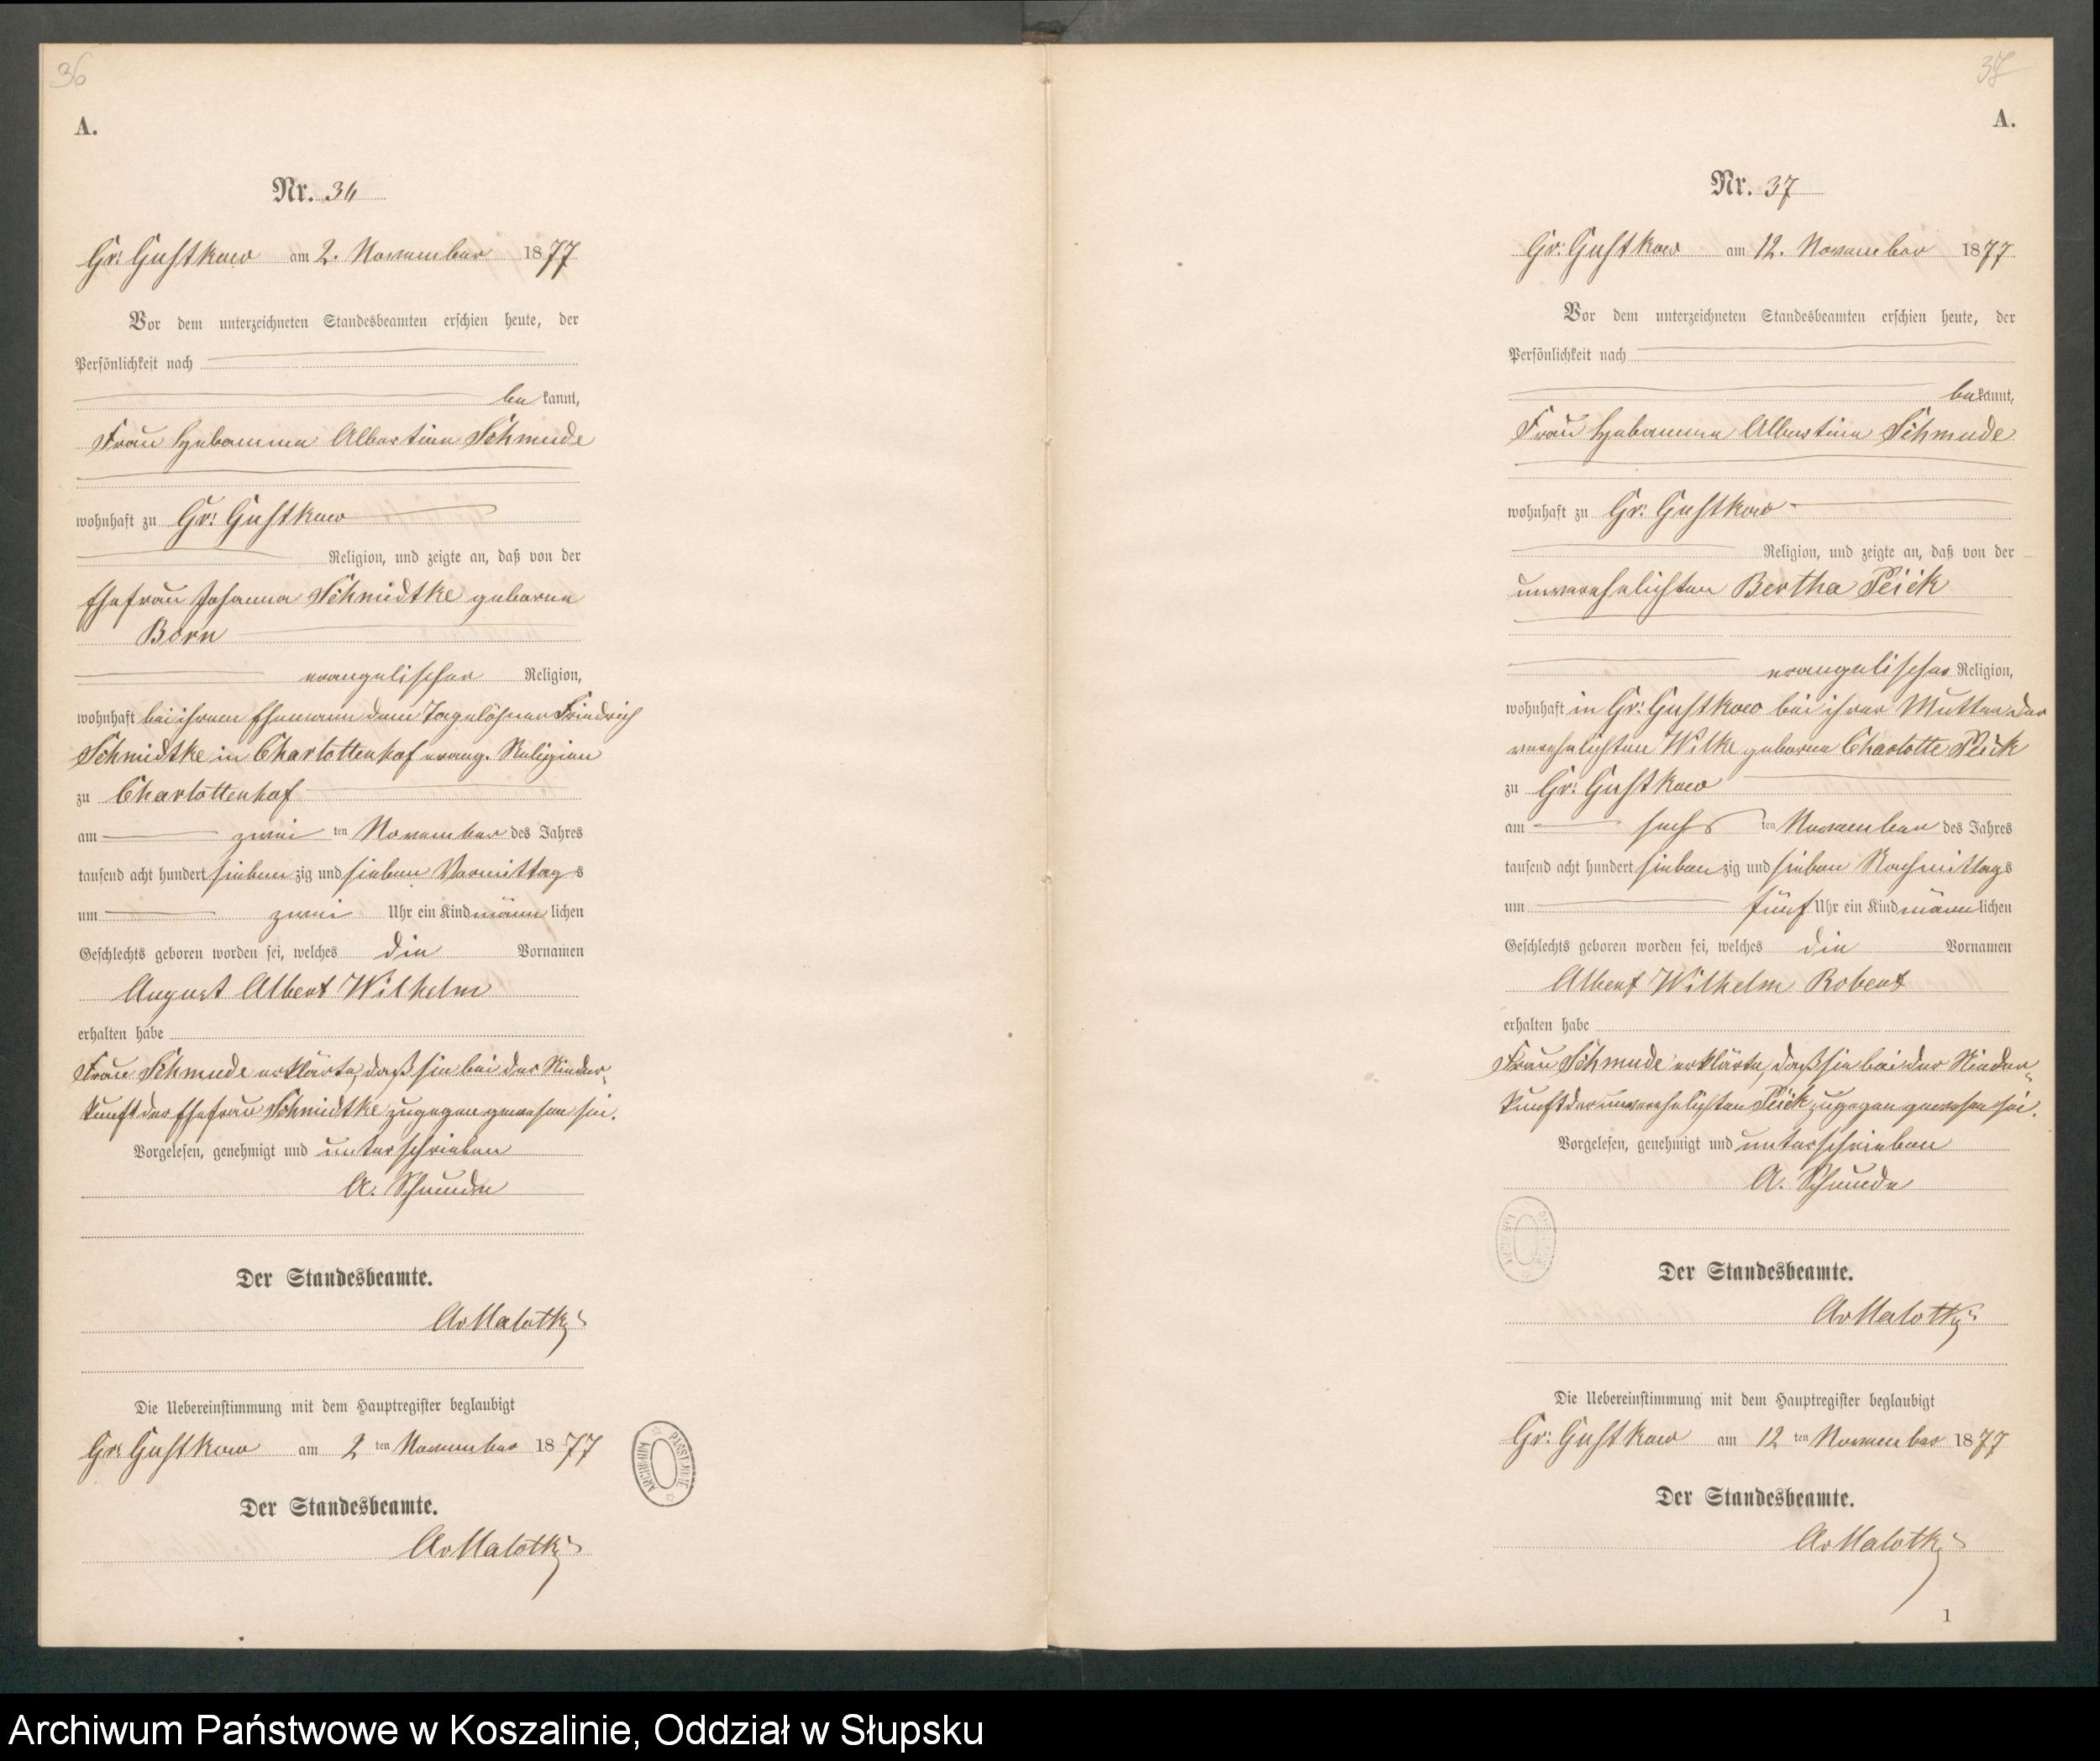 36
A.
Nr. 36
Gr: Gustkow am 2. November 1877
Vor dem unterzeichneten Standesbeamten erschien heute, der
Persönlichkeit nach
be kannt,
Frau Hebamme Albertine Schmude
wohnhaft zu Gr: Gustkow
Religion, und zeigte an, daß von der
Ehefrau Johanna Schmidtke geborne
Born
evangelischer Religion,
wohnhaft bei ihrem Ehemann dem Tagelöhner Friedrich
Schmidtke in Charlottenhof evang. Religion
zu Charlottenhof
am zwei ten November des Jahres
tausend acht hundert sieben zig und sieben Vormittags
um zwei Uhr ein Kind männ lichen
Geschlechts geboren worden sei, welches die Vornamen
August Albert Wilhelm
erhalten habe
Frau Schmude erklärte, daß sie bei der Nieder-
kunft der Ehefrau Schmidtke zugegen gewesen sei.
Vorgelesen, genehmigt und unterschrieben
A. Schmude
Der Standesbeamte.
AvMalotki
Die Uebereinstimmung mit dem Hauptregister beglaubigt
Gr: Gustkow am 2 ten November 1877
Der Standesbeamte.
AvMalotki
37
A.
Nr. 37
Gr: Gustkow am 12. November 1877
Vor dem unterzeichneten Standesbeamten erschien heute, der
Persönlichkeit nach
bekannt,
Frau Hebamme Albertine Schmude
wohnhaft zu Gr: Gustkow
Religion, und zeigte an, daß von der
unverehelichten Bertha Peick
evangelischer Religion,
wohnhaft in Gr: Gustkow bei ihrer Mutter der
verehelichten Wilke geborne Charlotte Peick
zu Gr: Gustkow
am sechs ten November des Jahres
tausend acht hundert sieben zig und sieben Nachmittags
um fünf Uhr ein Kind männlichen
Geschlechts geboren worden sei, welches die Vornamen
Albert Wilhelm Robert
erhalten habe
Frau Schmude erklärte, daß sie bei der Nieder-
kunft der unverehelichten Peick zugegen gewesen sei.
Vorgelesen, genehmigt und unterschrieben
A. Schmude
Der Standesbeamte.
AvMalotki
Die Uebereinstimmung mit dem Hauptregister beglaubigt
Gr: Gustkow am 12 ten November 1877
Der Standesbeamte.
AvMalotki
1
Archiwum Państwowe w Koszalinie, Oddział w Słupsku